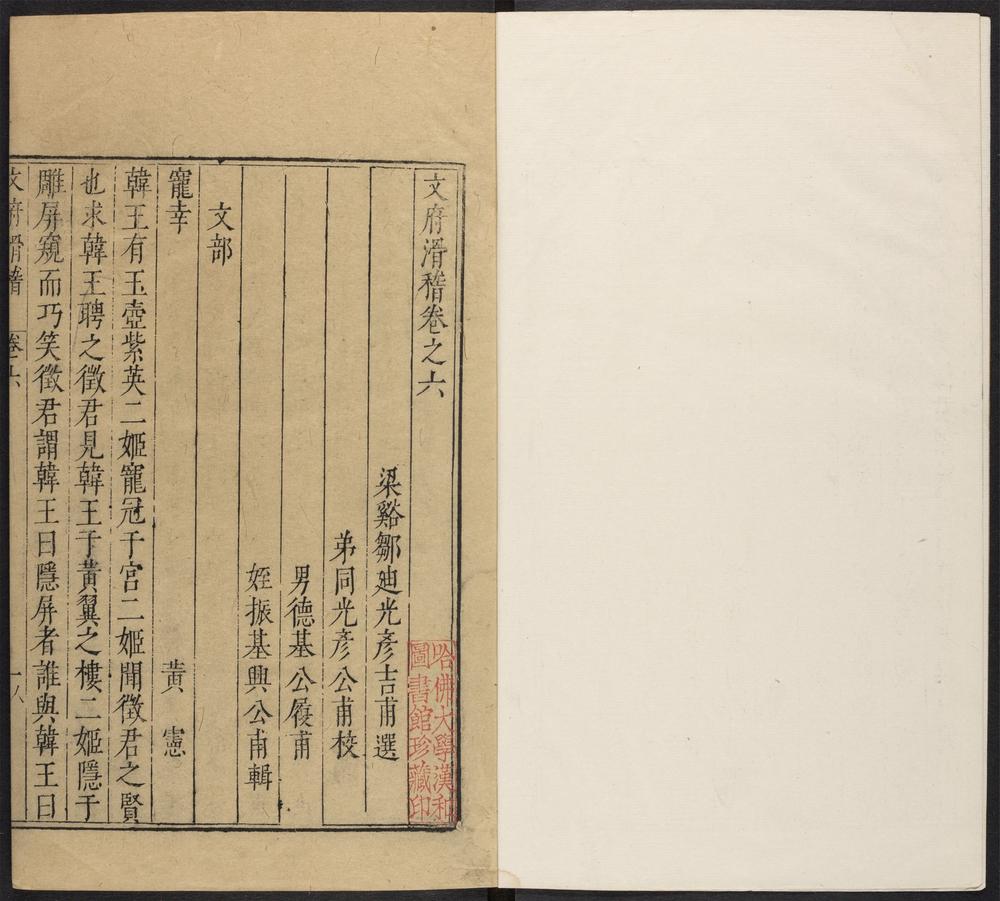 文府滑稽卷之六
梁谿鄒迪光彥吉甫選
弟同光彥公甫校
男德基公履甫
姪振基興公甫輯
文部
寵幸
黃憲
韓王有玉壺紫英二姬寵冠于宮二姬聞徵君之賢
也求韓王聘之徵君見韓王于黃翼之樓二姬隱于
雕屏窺而巧笑徵君謂韓王曰隱屏者誰與韓王曰
文府滑稽 卷之六 一
哈佛大學漢和
圖書館珍藏印